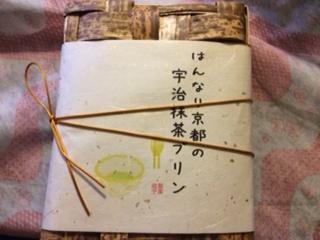 はんなり京都の
宇治抹茶プリン